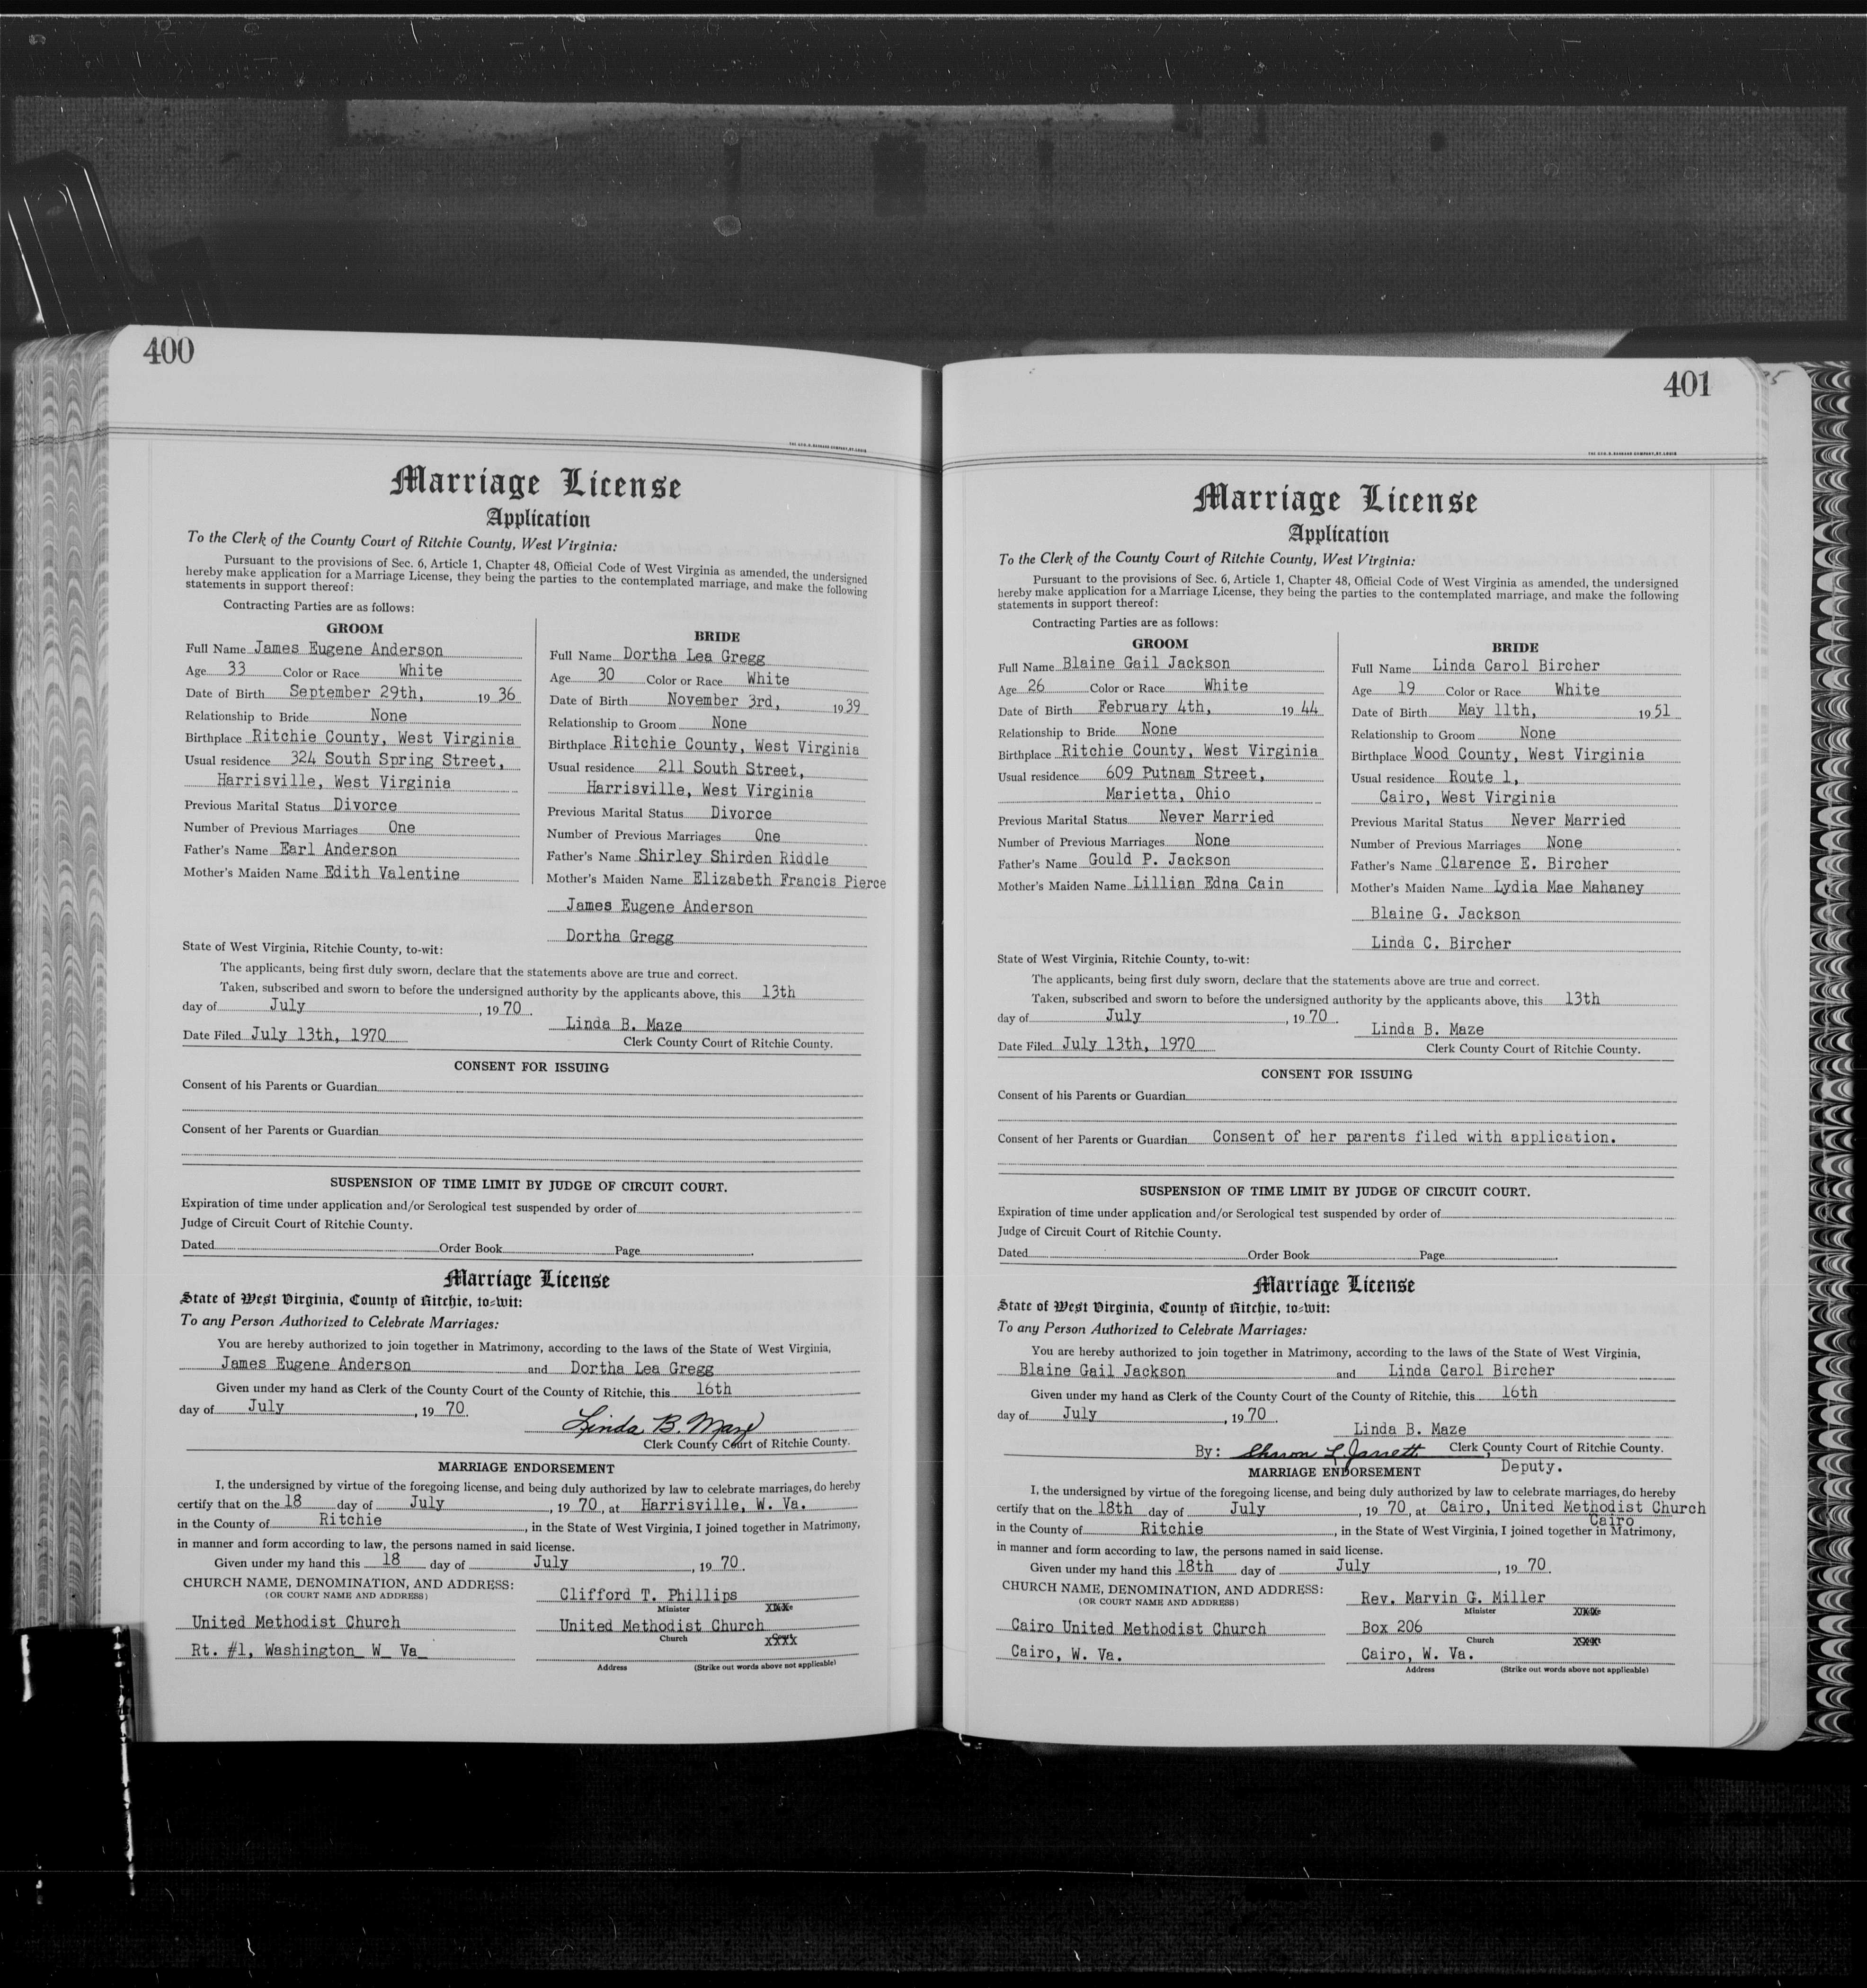 400
THE GEO. D. BARNARD COMPANY, ST. LOUIS
Marriage License
Application
To the Clerk of the County Court of Ritchie County, West Virginia:
Pursuant to the provisions of Sec. 6, Article 1, Chapter 48, Official Code of West Virginia as amended, the undersigned
hereby make application for a Marriage License, they being the parties to the contemplated marriage, and make the following
statements in support thereof:
Contracting Parties are as follows:
GROOM
Full Name James Eugene Anderson
Age 33 Color or Race White
Date of Birth September 29th, 19 36
Relationship to Bride None
Birthplace Ritchie County, West Virginia
Usual residence 324 South Spring Street,
Harrisville, West Virginia
Previous Marital Status Divorce
Number of Previous Marriages One
Father's Name Earl Anderson
Mother's Maiden Name Edith Valentine
BRIDE
Full Name Dortha Lea Gregg
Age 30 Color or Race White
Date of Birth November 3rd, 19 39
Relationship to Groom None
Birthplace Ritchie County, West Virginia
Usual residence 211 South Street,
Harrisville, West Virginia
Previous Marital Status Divorce
Number of Previous Marriages One
Father's Name Shirley Shirden Riddle
Mother's Maiden Name Elizabeth Francis Pierce
James Eugene Anderson
Dortha Gregg
State of West Virginia, Ritchie County, to-wit:
The applicants, being first duly sworn, declare that the statements above are true and correct.
Taken, subscribed and sworn to before the undersigned authority by the applicants above, this 13th
day of July, 19 70.
Linda B. Maze
Date Filed July 13th, 1970 Clerk County Court of Ritchie County.
CONSENT FOR ISSUING
Consent of his Parents or Guardian
Consent of her Parents or Guardian
SUSPENSION OF TIME LIMIT BY JUDGE OF CIRCUIT COURT.
Expiration of time under application and/or Serological test suspended by order of
Judge of Circuit Court of Ritchie County.
Dated Order Book Page .
Marriage License
State of West Virginia, County of Ritchie, to-wit:
To any Person Authorized to Celebrate Marriages:
You are hereby authorized to join together in Matrimony, according to the laws of the State of West Virginia,
James Eugene Anderson and Dortha Lea Gregg
Given under my hand as Clerk of the County Court of the County of Ritchie, this 16th
day of July, 19 70.
Linda B. Maze
Clerk County Court of Ritchie County.
MARRIAGE ENDORSEMENT
I, the undersigned by virtue of the foregoing license, and being duly authorized by law to celebrate marriages, do hereby
certify that on the 18 day of July, 19 70, at Harrisville, W. Va.
in the County of Ritchie, in the State of West Virginia, I joined together in Matrimony,
in manner and form according to law, the persons named in said license.
Given under my hand this 18 day of July, 19 70.
CHURCH NAME, DENOMINATION, AND ADDRESS:
(OR COURT NAME AND ADDRESS)
United Methodist Church
Rt. #1, Washington_ W_ Va_
Clifford T. Phillips
Minister
United Methodist Church
Church XXXX
Address (Strike out words above not applicable)
401
THE GEO. D. BARNARD COMPANY, ST. LOUIS
Marriage License
Application
To the Clerk of the County Court of Ritchie County, West Virginia:
Pursuant to the provisions of Sec. 6, Article 1, Chapter 48, Official Code of West Virginia as amended, the undersigned
hereby make application for a Marriage License, they being the parties to the contemplated marriage, and make the following
statements in support thereof:
Contracting Parties are as follows:
GROOM
Full Name Blaine Gail Jackson
Age 26 Color or Race White
Date of Birth February 4th, 19 44
Relationship to Bride None
Birthplace Ritchie County, West Virginia
Usual residence 609 Putnam Street,
Marietta, Ohio
Previous Marital Status Never Married
Number of Previous Marriages None
Father's Name Gould P. Jackson
Mother's Maiden Name Lillian Edna Cain
BRIDE
Full Name Linda Carol Bircher
Age 19 Color or Race White
Date of Birth May 11th, 19 51
Relationship to Groom None
Birthplace Wood County, West Virginia
Usual residence Route 1,
Cairo, West Virginia
Previous Marital Status Never Married
Number of Previous Marriages None
Father's Name Clarence E. Bircher
Mother's Maiden Name Lydia Mae Mahaney
Blaine G. Jackson
Linda C. Bircher
State of West Virginia, Ritchie County, to-wit:
The applicants, being first duly sworn, declare that the statements above are true and correct.
Taken, subscribed and sworn to before the undersigned authority by the applicants above, this 13th
day of July, 19 70.
Linda B. Maze
Date Filed July 13th, 1970 Clerk County Court of Ritchie County.
CONSENT FOR ISSUING
Consent of his Parents or Guardian
Consent of her Parents or Guardian Consent of her parents filed with application.
SUSPENSION OF TIME LIMIT BY JUDGE OF CIRCUIT COURT.
Expiration of time under application and/or Serological test suspended by order of
Judge of Circuit Court of Ritchie County.
Dated Order Book Page .
Marriage License
State of West Virginia, County of Ritchie, to-wit:
To any Person Authorized to Celebrate Marriages:
You are hereby authorized to join together in Matrimony, according to the laws of the State of West Virginia,
Blaine Gail Jackson and Linda Carol Bircher
Given under my hand as Clerk of the County Court of the County of Ritchie, this 16th
day of July, 19 70.
Linda B. Maze
By: Sharon L. Jarrett, Clerk County Court of Ritchie County.
Deputy.
MARRIAGE ENDORSEMENT
I, the undersigned by virtue of the foregoing license, and being duly authorized by law to celebrate marriages, do hereby
certify that on the 18th day of July, 19 70, at Cairo, United Methodist Church
Cairo
in the County of Ritchie, in the State of West Virginia, I joined together in Matrimony,
in manner and form according to law, the persons named in said license.
Given under my hand this 18th day of July, 19 70.
CHURCH NAME, DENOMINATION, AND ADDRESS:
(OR COURT NAME AND ADDRESS)
Cairo United Methodist Church
Cairo, W. Va.
Rev. Marvin G. Miller
Minister
Box 206
Church
Cairo, W. Va.
Address (Strike out words above not applicable)